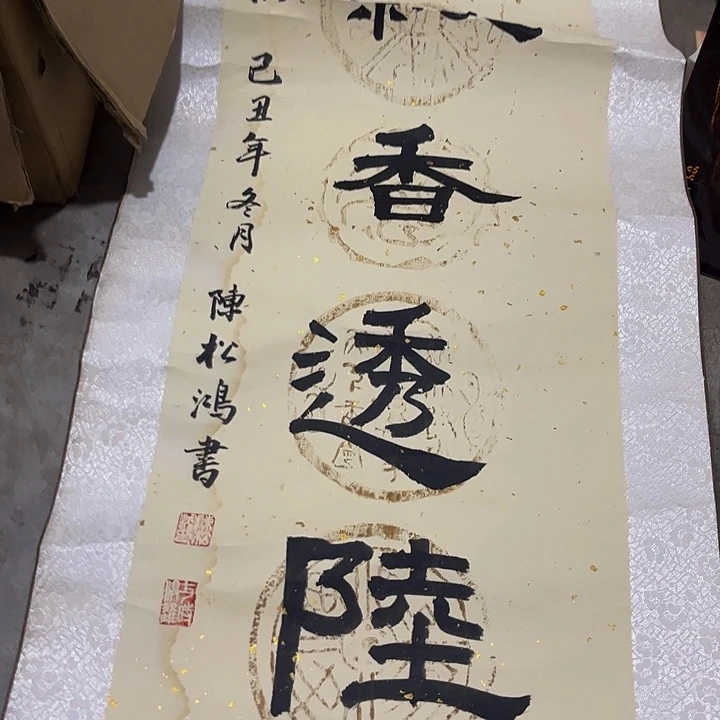 香透陸
己丑年冬月 陳松鴻書